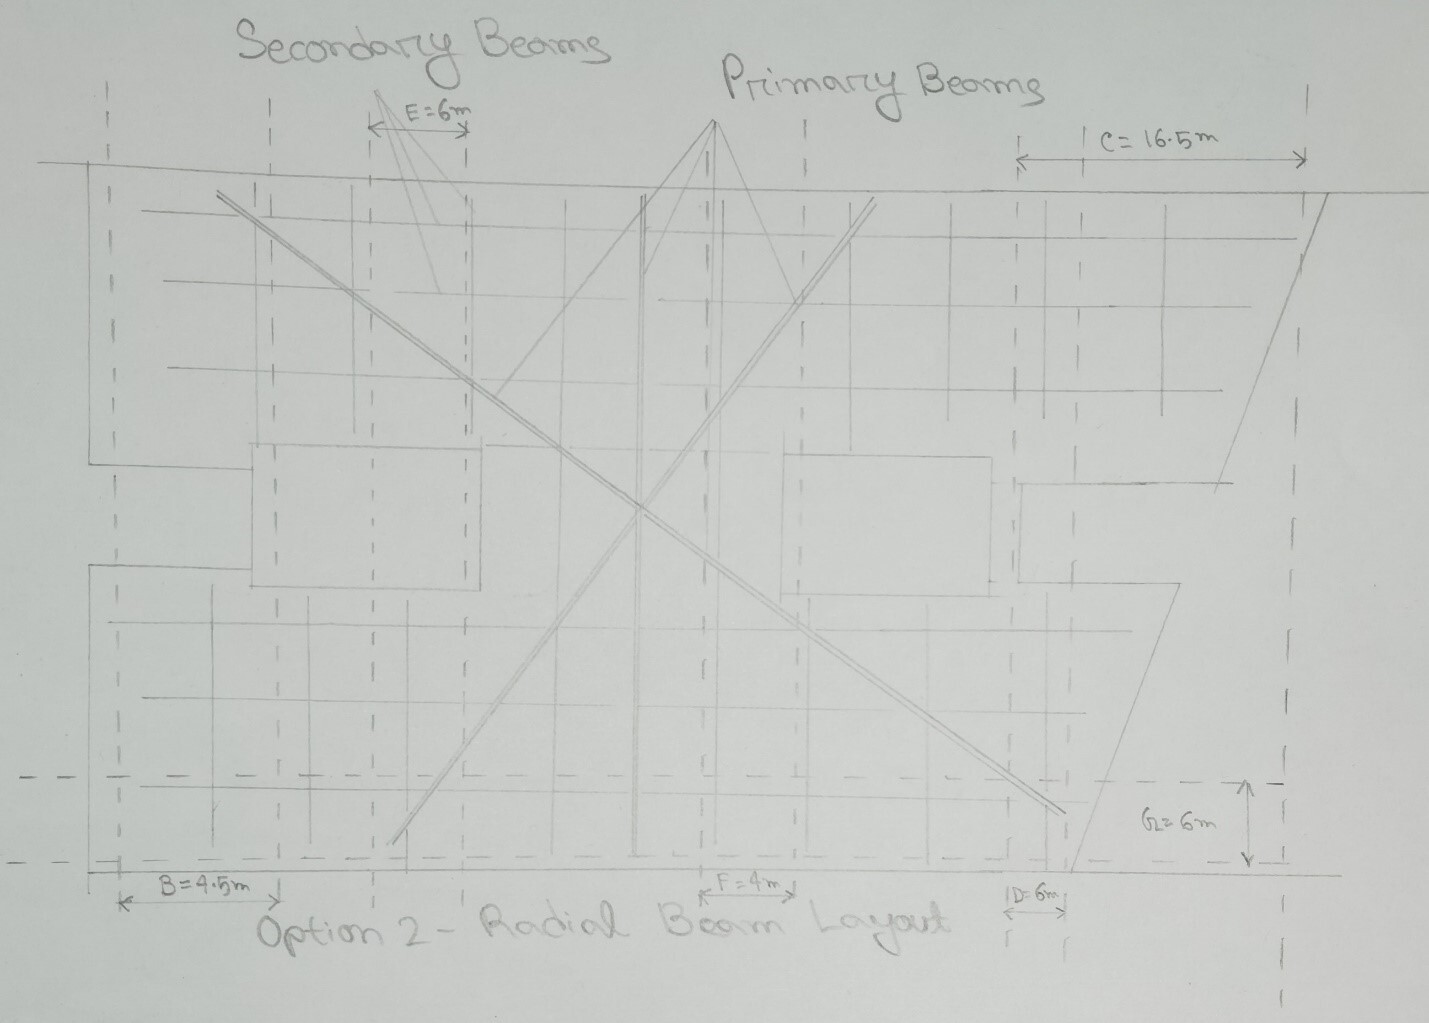 Secondary Beams
Primary Beams
E=6m
C=16.5m
G=6m
B=4.5m
F=4m
D=6m
Option 2 - Radial Beam Layout